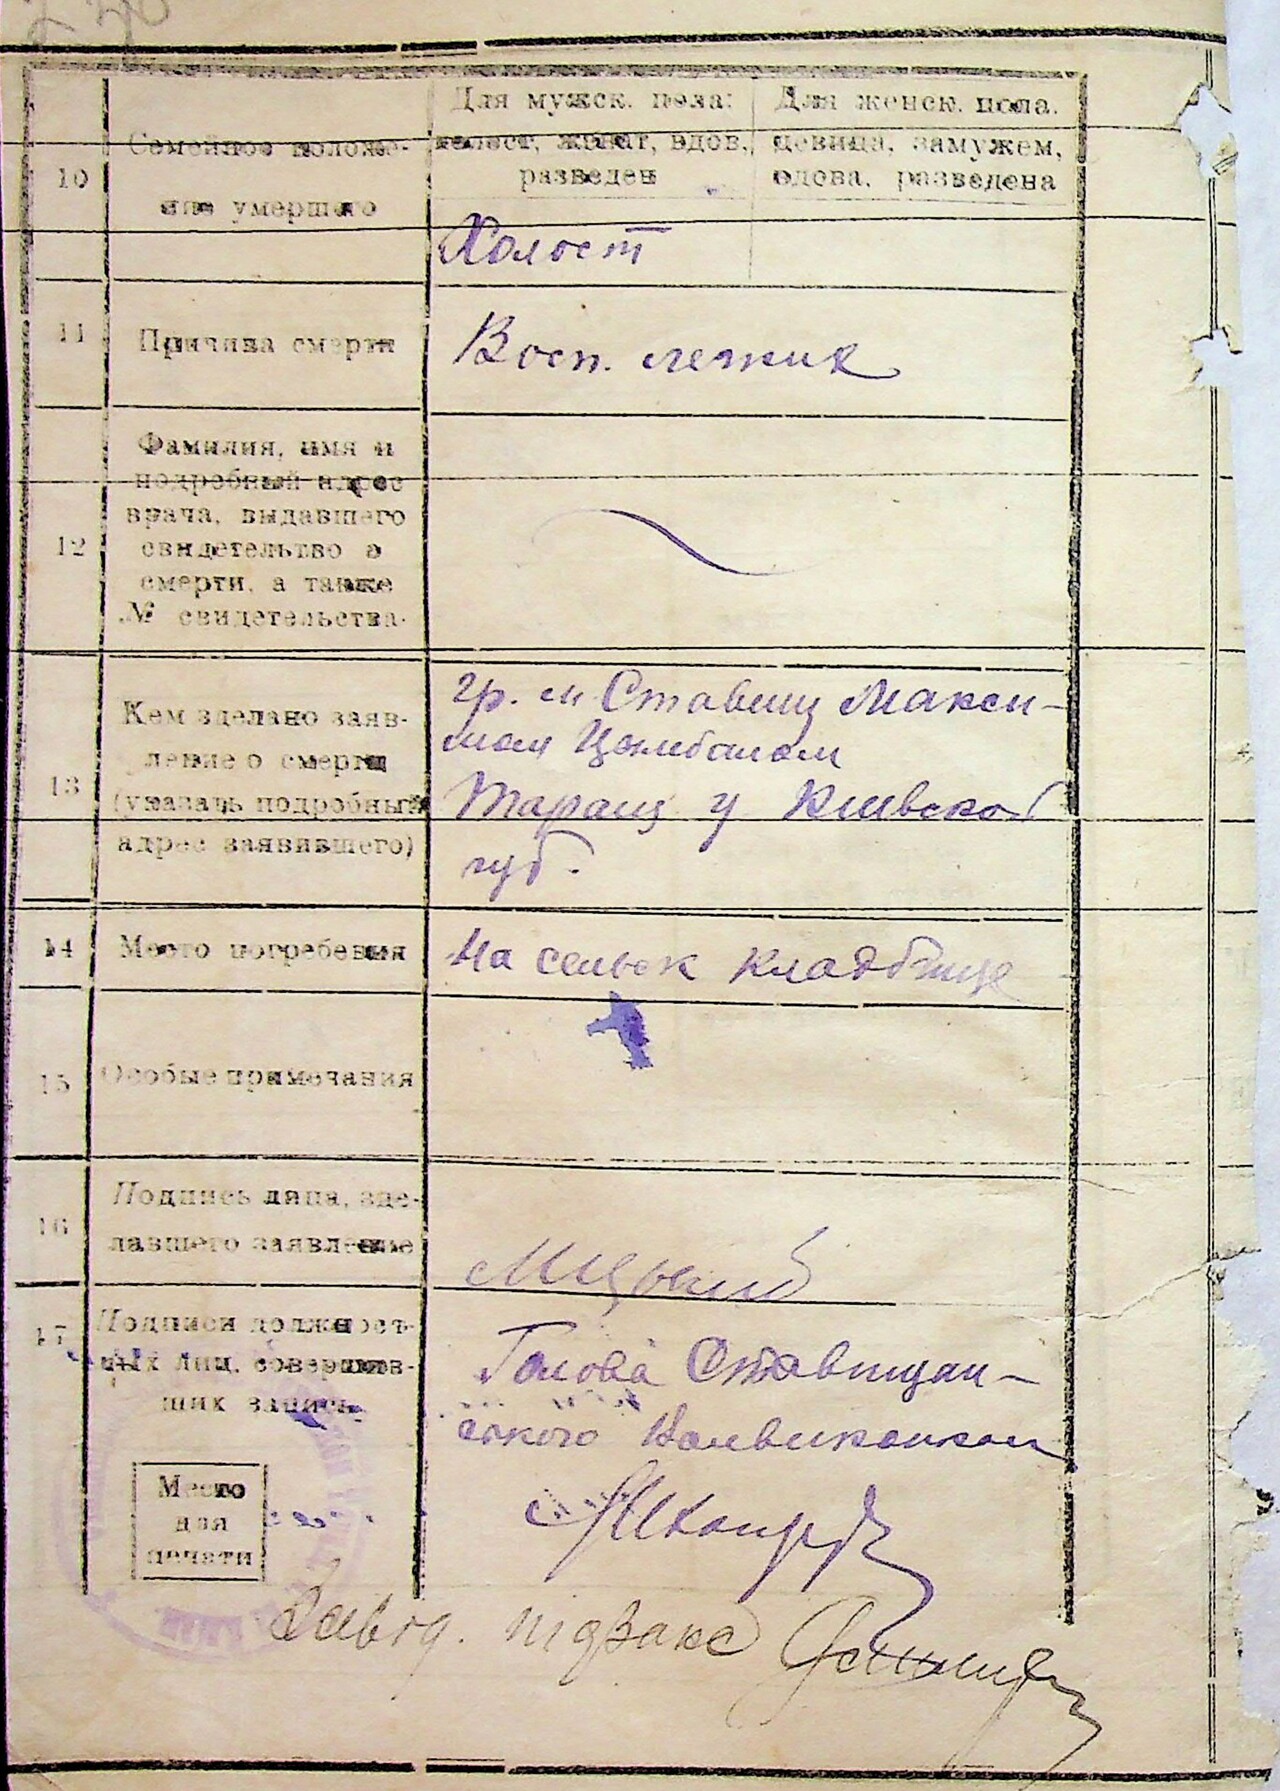 Для мужск. пола:
холост, женат, вдов,
разведен
Для женск. пола.
девица, замужем,
вдова, разведена
10
Семейное положе-
ние умершего
Холост
11
Причина смерти
Восп. легких
12
Фамилия, имя и
подробный адрес
врача, выдавшего
свидетельство о
смерти, а также
№ свидетельства.
13
Кем зделано заяв-
ление о смерти
(указать подробный
адрес заявившего)
гр. м Ставищ Макси-
мом Цимбалом
Таращ у Киевской
губ.
14
Место погребения
На сельск кладбище
15
Особые примечания
16
Подпись лица, зде-
лавшего заявление
17
Подписи должност-
ных лиц, совершив-
ших запись
Голова Ставищан-
ського Волвиконком
Место
для
печати
Завід. підзакс